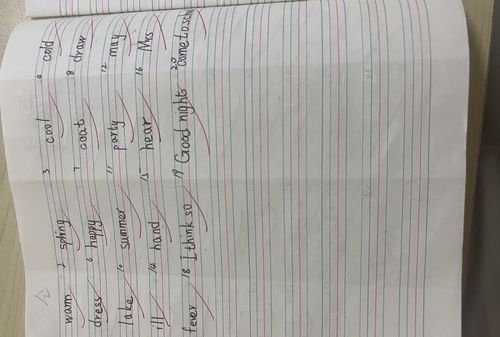 warm 2 spring 3 cool 4 cold
dress 6 happy 7 coat 8 draw
lake 10 summer 11 party 12 may
ill 14 hand 15 hear 16 Mrs
fever 18 I think so 19 Good nights 20 come to sch